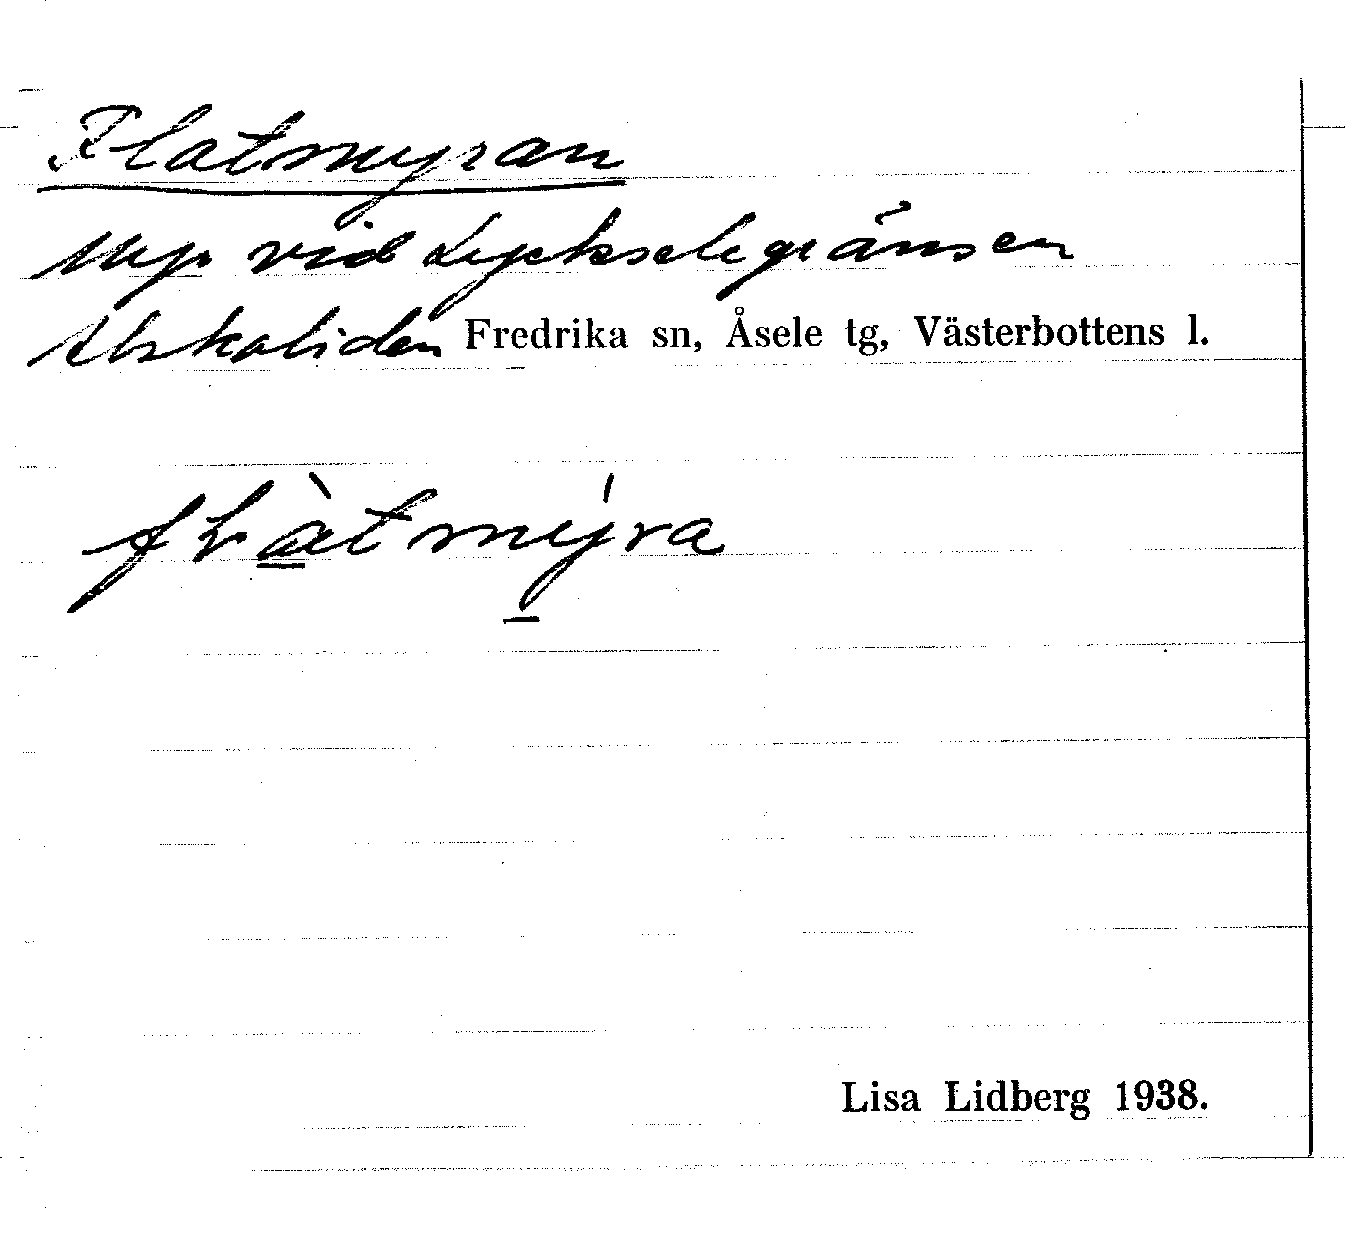 Flatmyran
Myr vid Lyckselegränsen
Alskaliden Fredrika sn, Åsele tg, Västerbottens l.
fLàtmýra
Lisa Lidberg 1938.